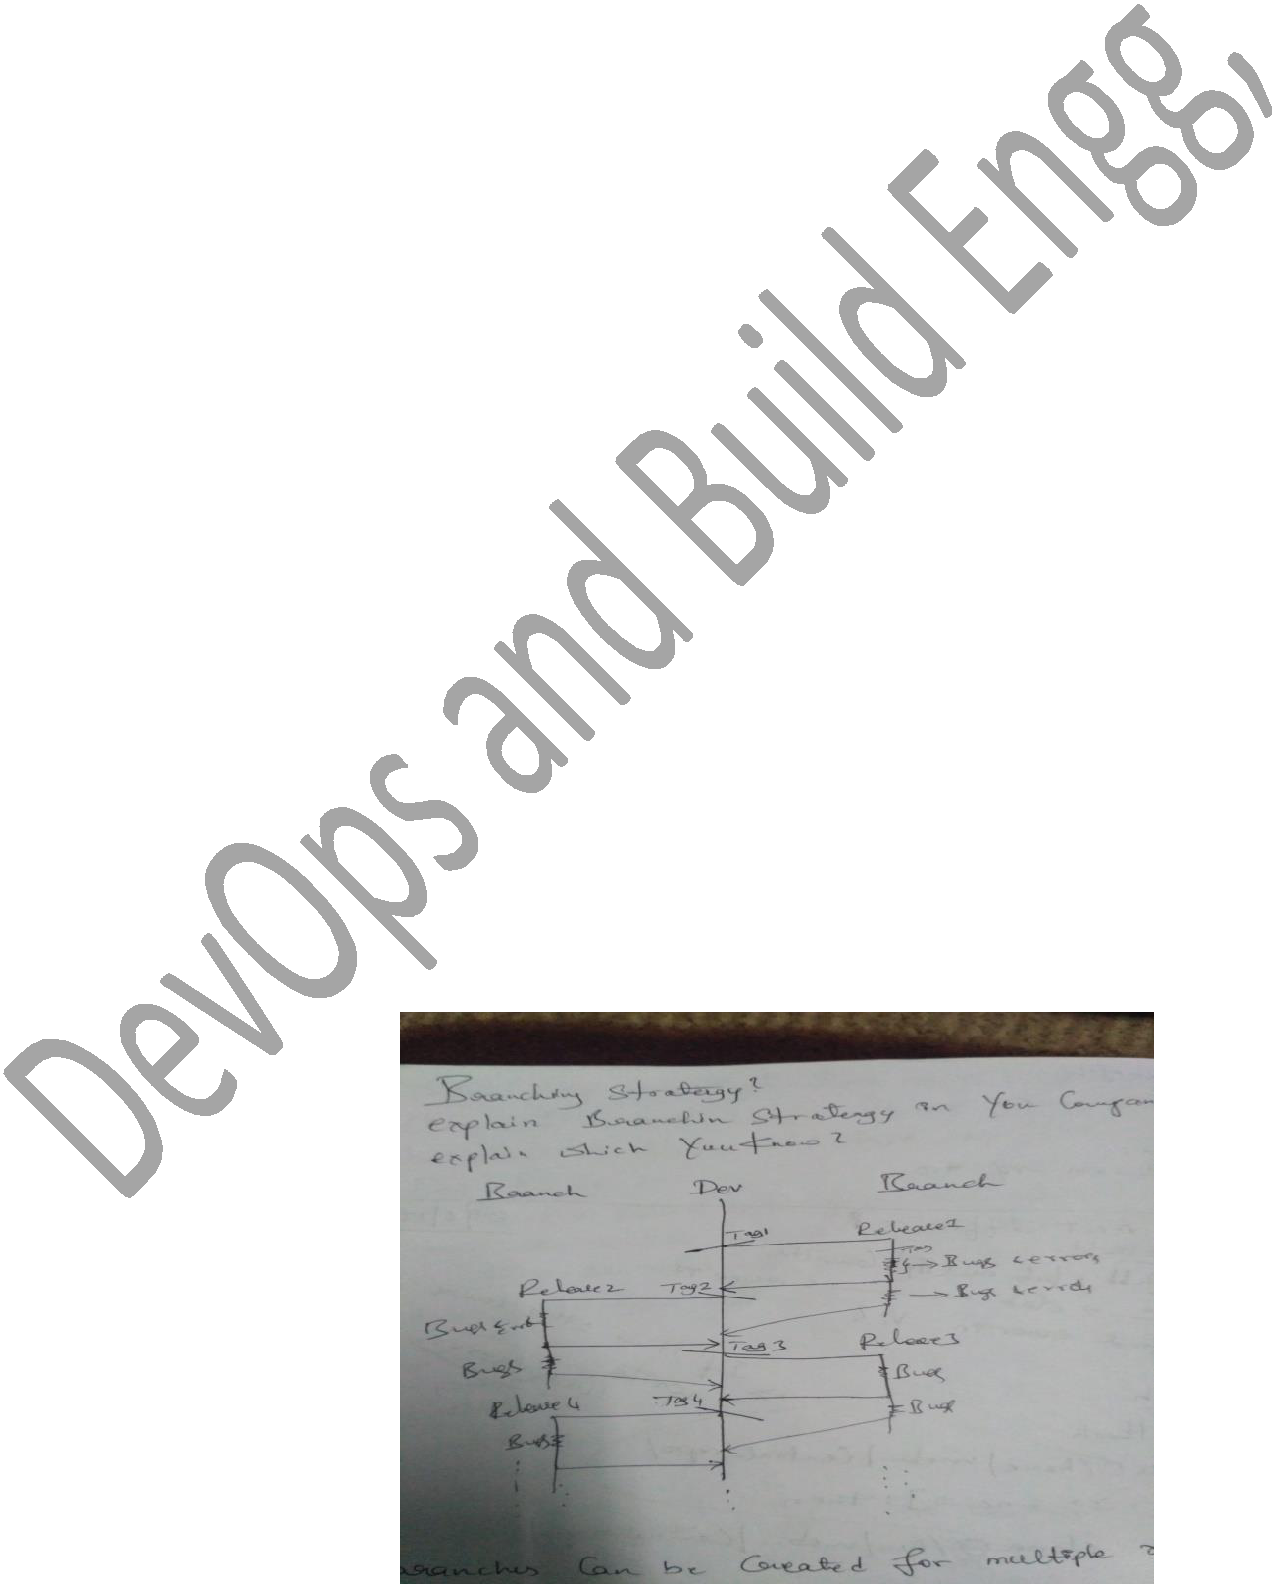 DevOps and Build Engg,
Branching Stratergy?
explain Branchin Stratergy in You Compan
explain which You Know?
Branch Dev Branch
Tag1 Release1
Tag
→ Bugs & errors
Release2 Tag2 → Bugs & errors
Bugs &
Tag3 Release3
Bugs Bugs
Release4 Tag4 Bugs
Bugs
ranches Can be Created for multiple